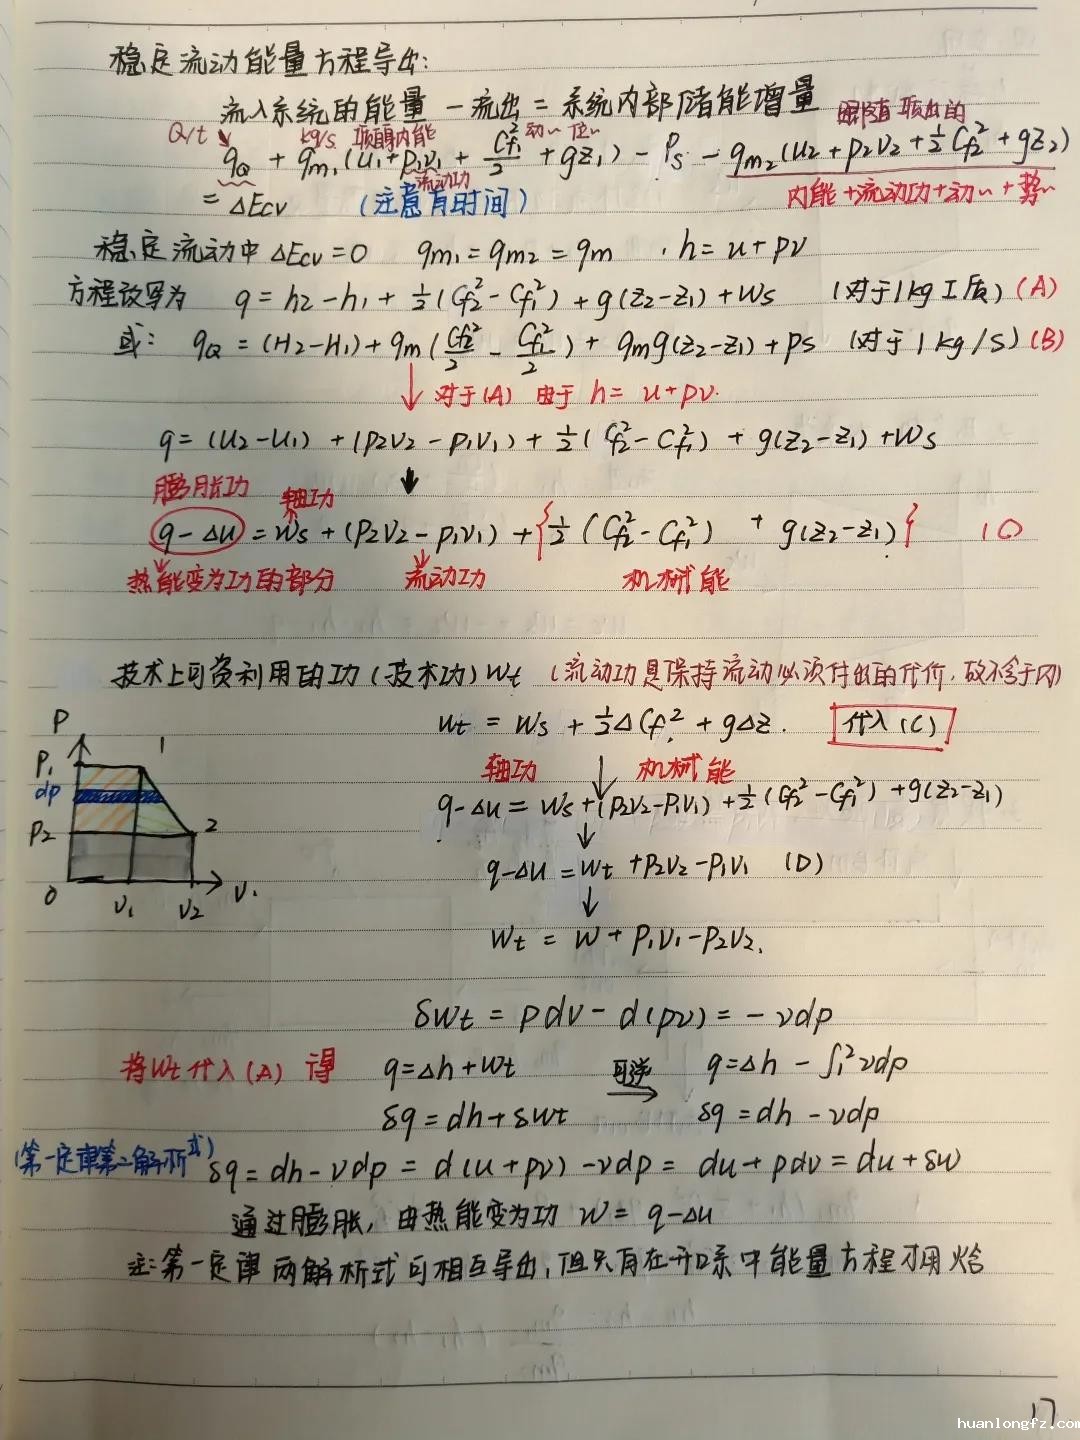 稳定流动能量方程导出:
流入系统的能量 - 流出 = 系统内部储能增量
Q/t kg/s 内能 动~ 位~ 跟随 流出的
q_Q + q_m1 (u1 + p1v1 + Cf1²/2 + gz1) - Ps - q_m2 (u2 + p2v2 + ½Cf2² + gz2)
流动功
= ΔEcv (注意有时间) 内能+流动功+动~+势~
稳定流动中 ΔEcv = 0 qm1 = qm2 = qm , h = u + pv
方程改写为 q = h2 - h1 + ½(Cf2² - Cf1²) + g(z2 - z1) + Ws (对于1kg工质) (A)
或: q_Q = (H2 - H1) + qm (Cf2²/2 - Cf1²/2) + qmg(z2 - z1) + Ps (对于1kg/s) (B)
对于(A) 由于 h = u + pv.
q = (u2 - u1) + (p2v2 - p1v1) + ½(Cf2² - Cf1²) + g(z2 - z1) + Ws
膨胀功 轴功
q - Δu = Ws + (p2v2 - p1v1) + {½(Cf2² - Cf1²) + g(z2 - z1)} (C)
热能变为功的部分 流动功 机械能
技术上可资利用的功(技术功) Wt (流动功是保持流动必须付出的代价,故不含于内)
wt = Ws + ½ΔCf² + gΔz. 代入(C)
轴功 机械能
q - Δu = Ws + (p2v2 - p1v1) + ½(Cf2² - Cf1²) + g(z2 - z1)
q - Δu = wt + p2v2 - p1v1 (D)
Wt = W + p1v1 - p2v2.
P
P1
dp
P2
0
1
2
V1
V2
V.
δwt = pdv - d(pv) = -vdp
将Wt代入(A) 得 q = Δh + wt 可逆 q = Δh - ∫₁² vdp
δq = dh + δwt δq = dh - vdp
(第一定律第二解析式) δq = dh - vdp = d(u + pv) - vdp = du + pdv = du + δw
通过膨胀, 由热能变为功 W = q - Δu
注: 第一定律两解析式可相互导出, 但只有在开口系中能量方程才用焓
17
huanlongfz.com